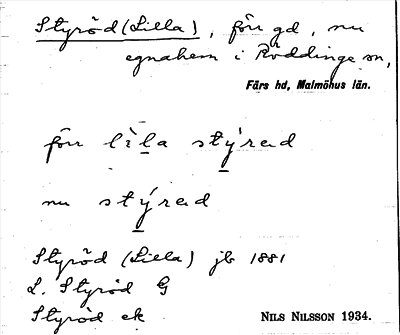 Styröd (Lilla), förr gd, nu
egnahem i Röddinge sn,
Färs hd, Malmöhus län.
förr lìla stýrad
nu stýrad
Styröd (Lilla) jb 1881
L. Styröd G
Styröd ek
NILS NILSSON 1934.